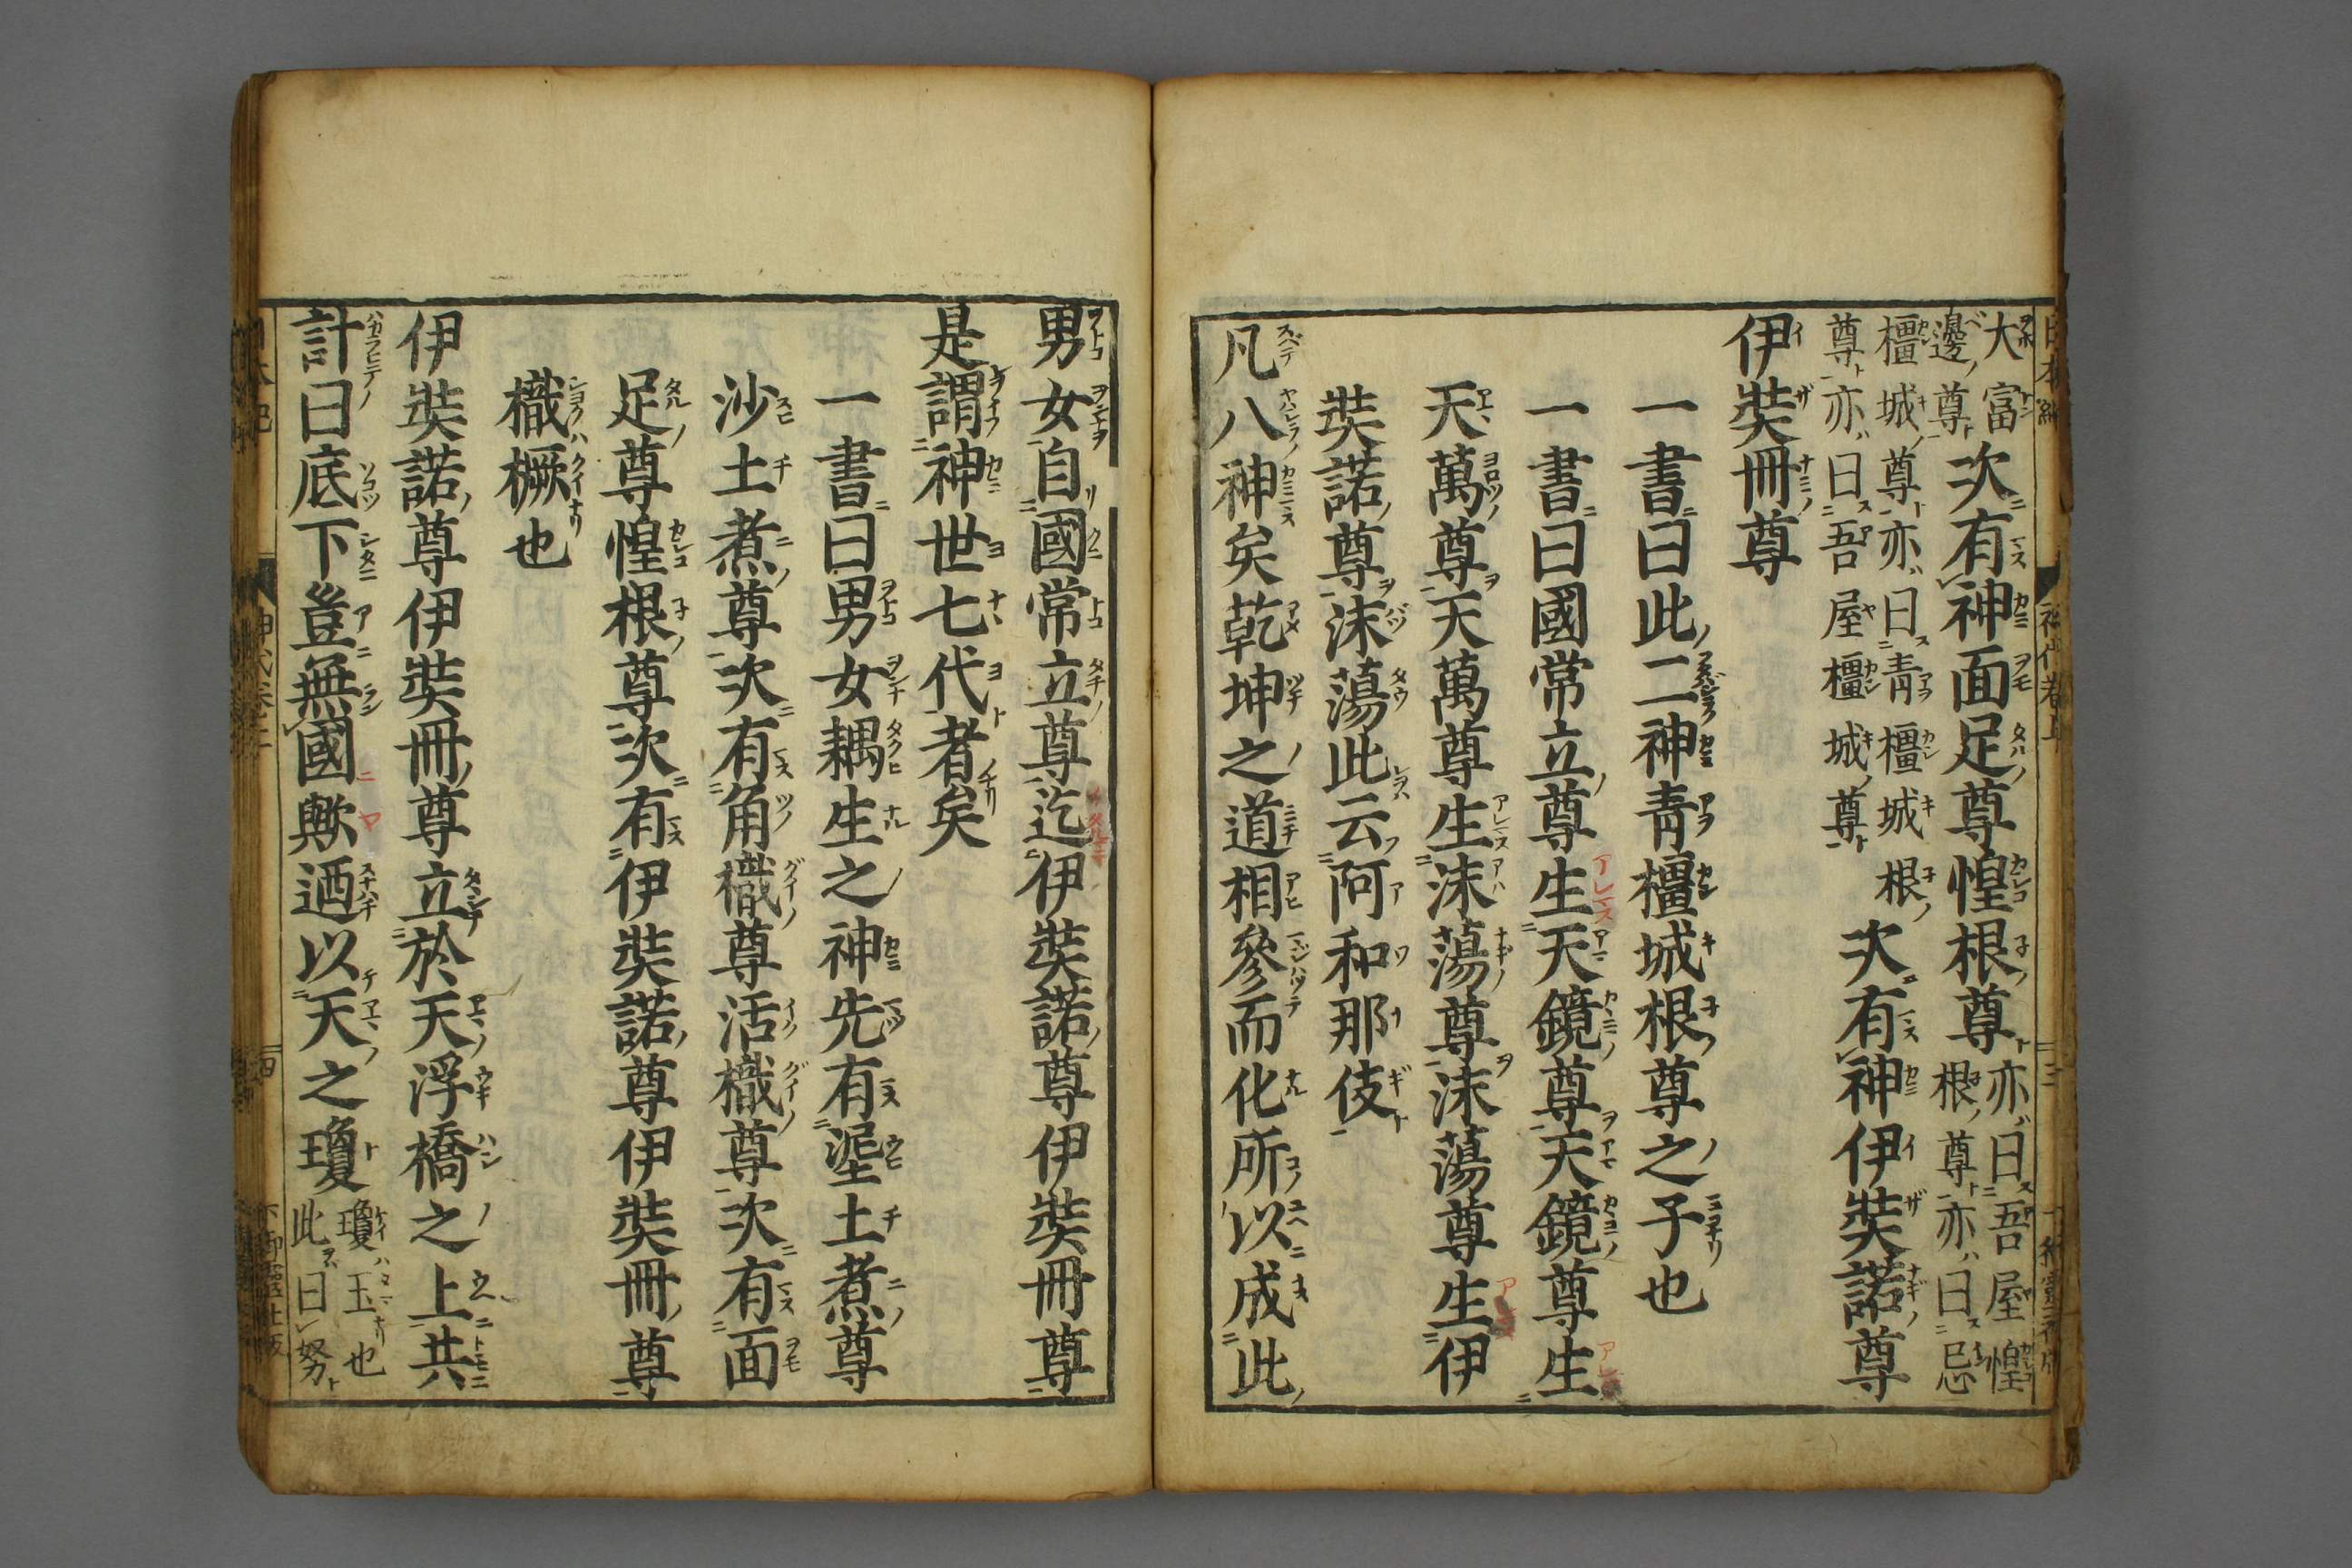 大富
邊尊
次有神面足尊惶根尊
亦曰吾屋惶
根尊亦曰忌
橿城尊亦曰青橿城根
尊亦曰吾屋橿城尊
次有神伊弉諾尊
伊弉冊尊
一書曰此二神青橿城根尊之子也
一書曰國常立尊生天鏡尊天鏡尊生
天萬尊天萬尊生沫蕩尊沫蕩尊生伊
弉諾尊沫蕩此云阿和那伎
凡八神矣乾坤之道相參而化所以成此
男女自國常立尊迄伊弉諾尊伊弉冊尊
是謂神世七代者矣
一書曰男女耦生之神先有埿土煮尊
沙土煮尊次有角樴尊活樴尊次有面
足尊惶根尊次有伊弉諾尊伊弉冊尊
樴橛也
伊弉諾尊伊弉冊尊立於天浮橋之上共
計曰底下豈無國歟迺以天之瓊
瓊玉也
此曰努